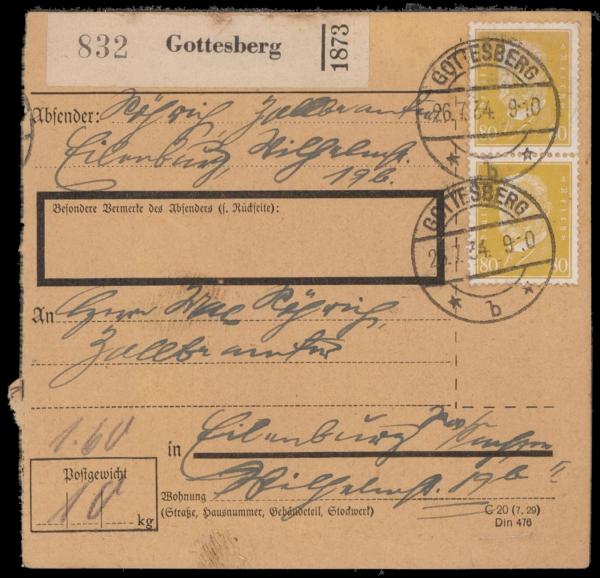 832 Gottesberg 1873
Absender: Röhrich Zollbeamter
Eilenburg Wilhelmst.
19b.
Besondere Vermerke des Absenders (s. Rückseite):
GOTTESBERG
26.7.34. 9-10
* b *
80 80
GOTTESBERG
26.7.34 9-10
* b *
80 80
An Herrn Röhrich,
Zollbeamter
1.60
in Eilenburg Sachsen
Postgewicht
10
kg
Wohnung Wilhelmst. 19b II
(Straße, Hausnummer, Gebäudeteil, Stockwerk)
C 20 (7. 29)
Din 476